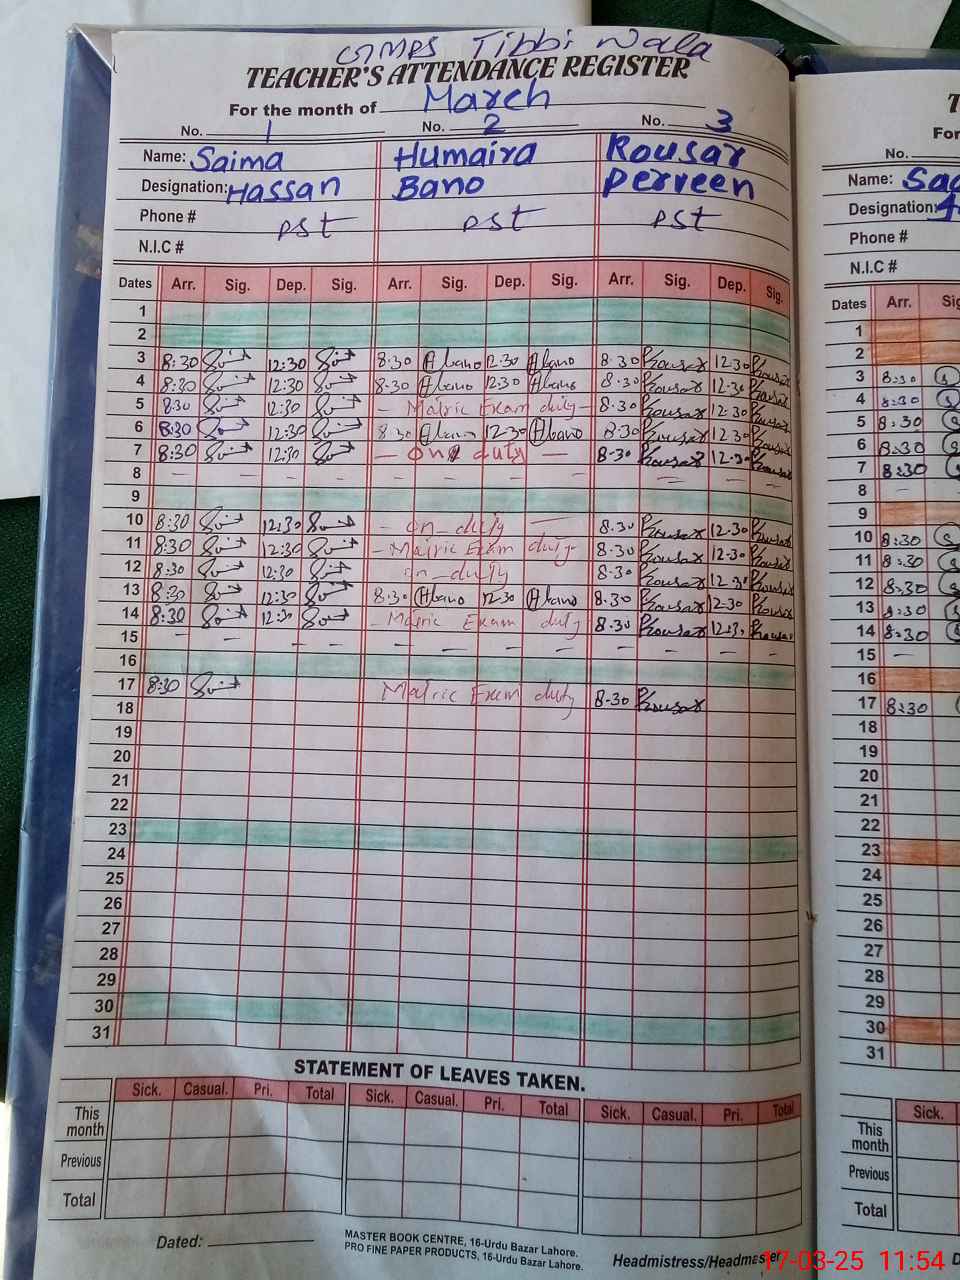 GMPS Tibbi Wala
TEACHER'S ATTENDANCE REGISTER
For the month of March
No. 1 No. 2 No. 3
Name: Saima Humaira Kousar
Designation: Hassan Bano Perveen
Phone # PST PST PST
N.I.C #
Dates Arr. Sig. Dep. Sig. Arr. Sig. Dep. Sig. Arr. Sig. Dep. Sig.
1
2
3 8:30 12:30 8:30 Hbano 12:30 Hbano 8:30 Kousar 12:30 Kousar
4 8:30 12:30 8:30 Hbano 12:30 Hbano 8:30 Kousar 12:30 Kousar
5 8:30 12:30 - Matric Exam duty - 8:30 Kousar 12:30 Kousar
6 8:30 12:30 8:30 Hbano 12:30 Hbano 8:30 Kousar 12:30 Kousar
7 8:30 12:30 — On duty — 8:30 Kousar 12:30 Kousar
8 — — — — — — — — — — — —
9
10 8:30 12:30 - On_duty — 8:30 Kousar 12:30 Kousar
11 8:30 12:30 - Matric Exam duty- 8:30 Kousar 12:30 Kousar
12 8:30 12:30 on_duty 8:30 Kousar 12:30 Kousar
13 8:30 12:30 8:30 Hbano 12:30 Hbano 8:30 Kousar 12:30 Kousar
14 8:30 12:30 - Matric Exam duty 8:30 Kousar 12:30 Kousar
15 — — — — — — — — — — — —
16
17 8:30 Matric Exam duty 8:30 Kousar
18
19
20
21
22
23
24
25
26
27
28
29
30
31
STATEMENT OF LEAVES TAKEN.
Sick. Casual. Pri. Total Sick. Casual. Pri. Total Sick. Casual. Pri. Total
This month
Previous
Total
Dated:
MASTER BOOK CENTRE, 16-Urdu Bazar Lahore.
PRO FINE PAPER PRODUCTS, 16-Urdu Bazar Lahore.
Headmistress/Headmaster
T
For
No.
Name:
Designation:
Phone #
N.I.C #
Dates Arr. Sig
1
2
3 8:30
4 8:30
5 8:30
6 8:30
7 8:30
8 —
9
10 8:30
11 8:30
12 8:30
13 8:30
14 8:30
15 —
16
17 8:30
18
19
20
21
22
23
24
25
26
27
28
29
30
31
Sick.
This month
Previous
Total
D
17-03-25 11:54